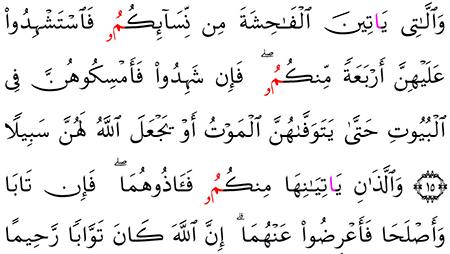 وَٱلَّٰتِى يَاتِينَ ٱلْفَٰحِشَةَ مِن نِّسَآئِكُمُۥ فَٱسْتَشْهِدُوا۟
عَلَيْهِنَّ أَرْبَعَةً مِّنكُمُۥ ۖ فَإِن شَهِدُوا۟ فَأَمْسِكُوهُنَّ فِى
ٱلْبُيُوتِ حَتَّىٰ يَتَوَفَّىٰهُنَّ ٱلْمَوْتُ أَوْ يَجْعَلَ ٱللَّهُ لَهُنَّ سَبِيلًا
١٥ وَٱلَّذَانِ يَاتِيَٰنِهَا مِنكُمُۥ فَـَٔاذُوهُمَا ۖ فَإِن تَابَا
وَأَصْلَحَا فَأَعْرِضُوا۟ عَنْهُمَا ۗ إِنَّ ٱللَّهَ كَانَ تَوَّابًا رَّحِيمًا